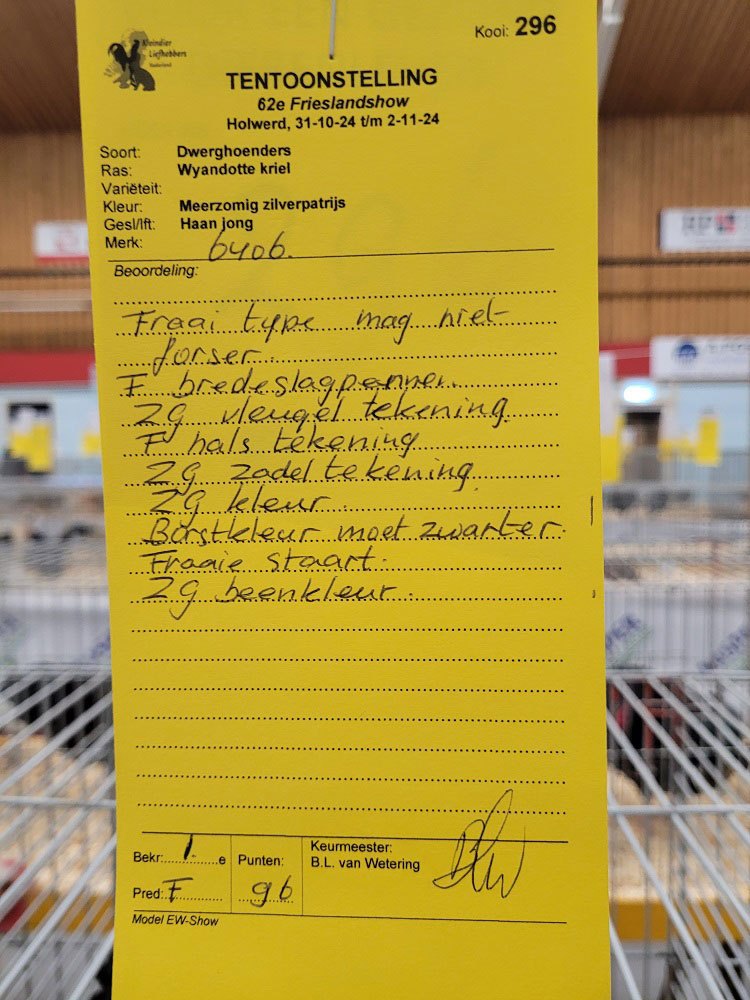 Kleindier
Liefhebbers
Nederland
Kooi: 296
TENTOONSTELLING
62e Frieslandshow
Holwerd, 31-10-24 t/m 2-11-24
Soort: Dwerghoenders
Ras: Wyandotte kriel
Variëteit:
Kleur: Meerzomig zilverpatrijs
Gesl/lft: Haan jong
Merk: 6406.
Beoordeling:
Fraai type mag niet
forser.
F bredeslagpennen.
ZG vleugel tekening.
F hals tekening
ZG zadel tekening.
ZG kleur.
Borstkleur moet zwarter.
Fraaie staart.
ZG beenkleur.
Bekr: 1 e Punten: 96 Keurmeester:
B.L. van Wetering
Pred: F
Model EW-Show